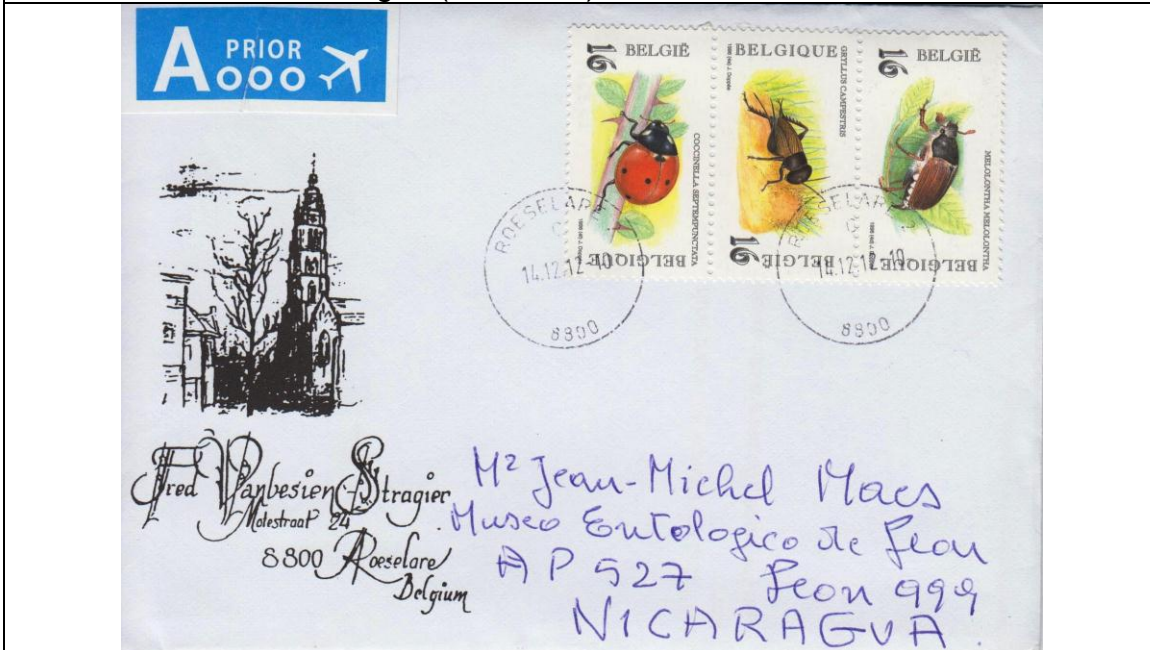 A PRIOR
BELGIË
16
COCCINELLA SEPTEMPUNCTATA
BELGIQUE
BELGIQUE
GRYLLUS CAMPESTRIS
16
BELGIË
BELGIË
16
MELOLONTHA MELOLONTHA
BELGIQUE
ROESELARE
14.12.12-10
8800
ROESELARE
14.12.12-10
8800
Fred Vanbesien-Stragier
Molestraat 24
8800 Roeselare
Belgium
Mr Jean-Michel Maes
Museo Entologico de Leon
AP 527 Leon 999
NICARAGUA.